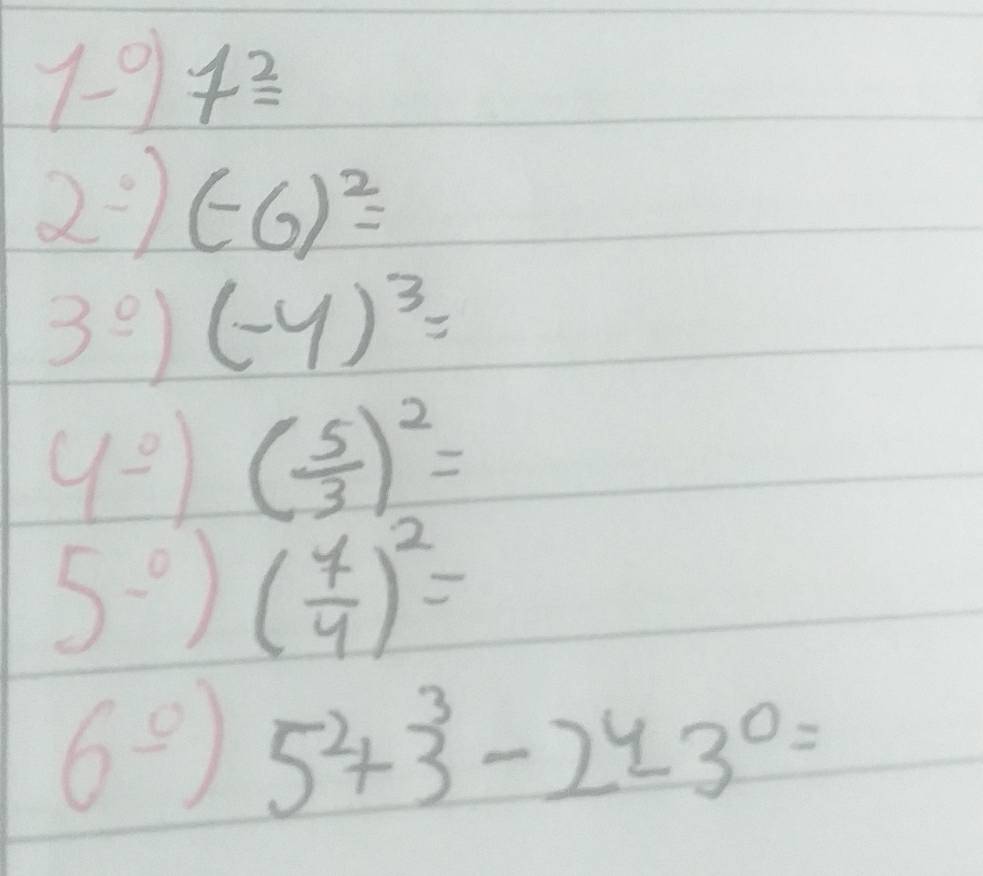 1º) 7²=
2º) (-6)²=
3º) (-4)³=
4º) (5/3)²=
5º) (7/4)²=
6º) 5²+3³-2⁴-3⁰=